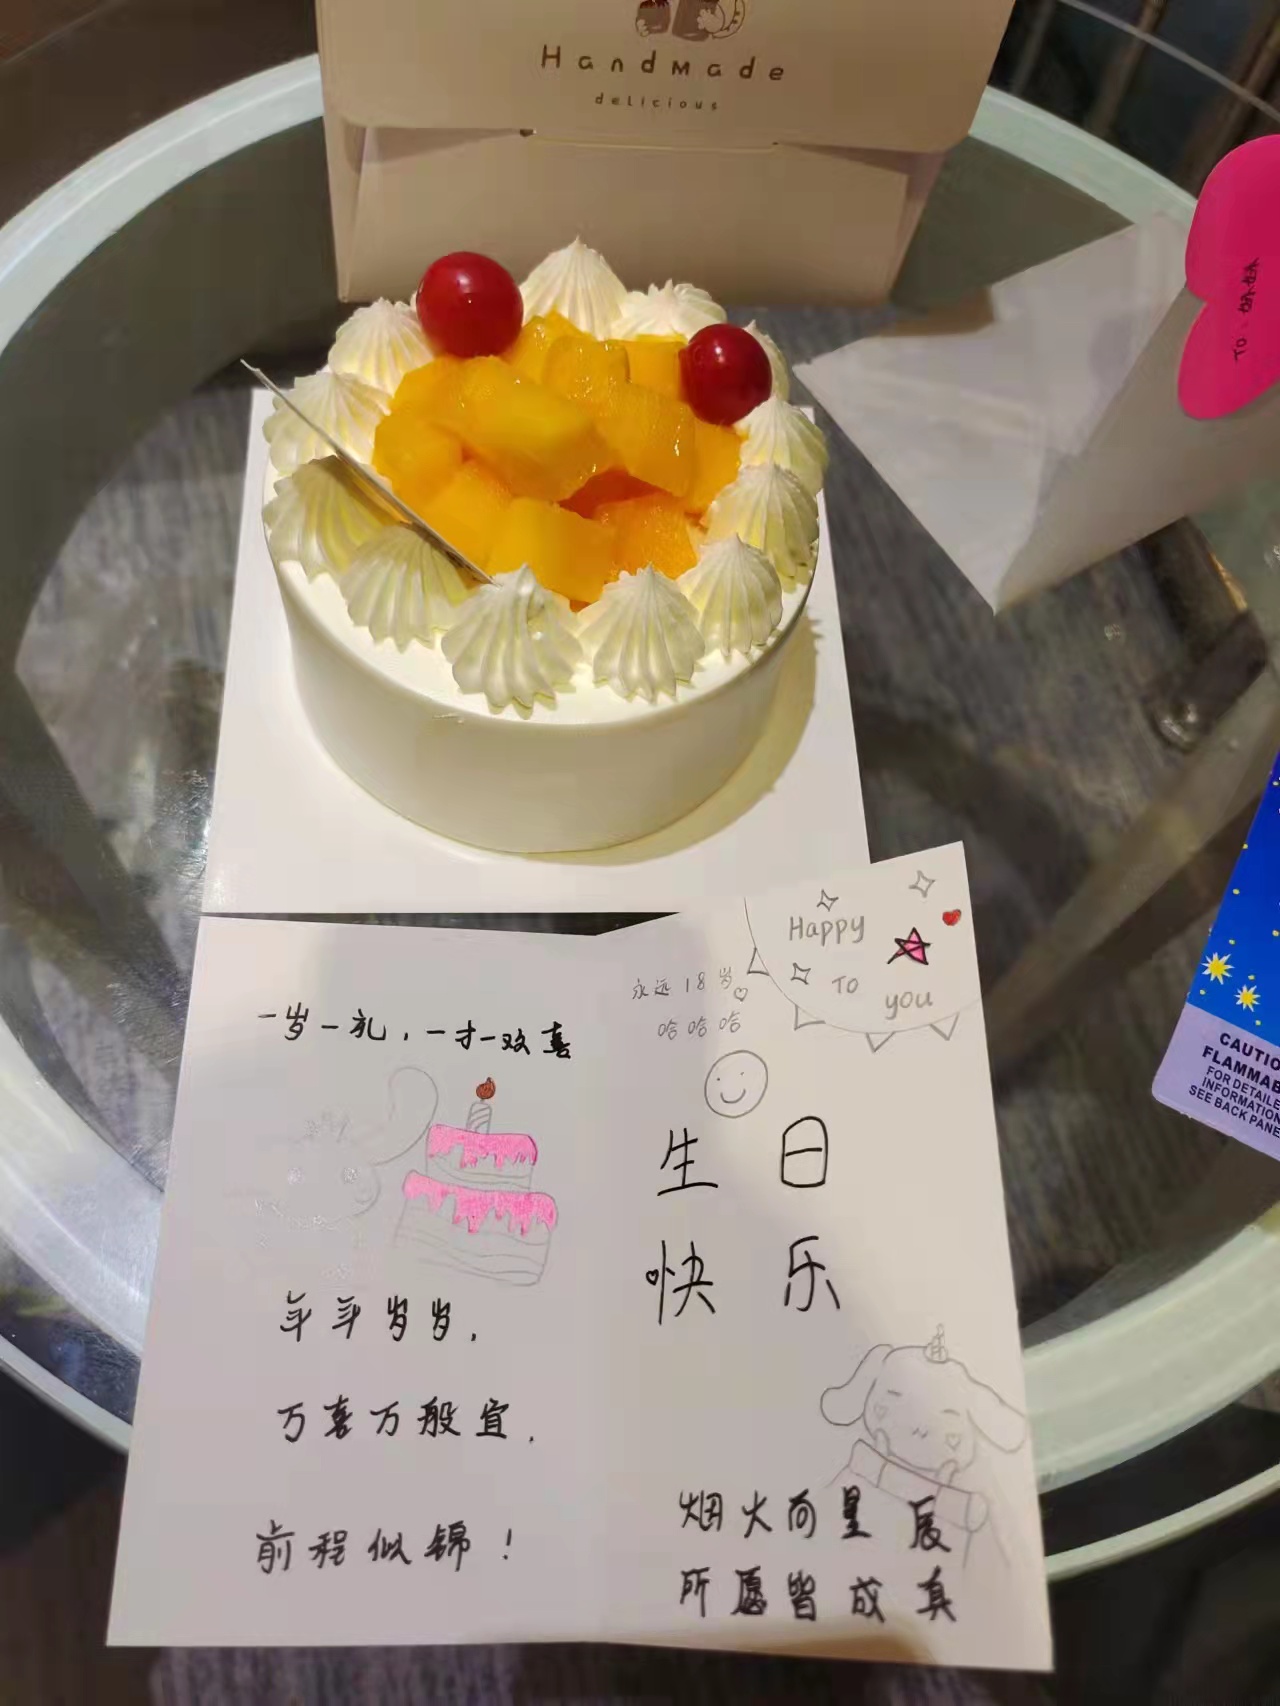 Handmade
delicious
TO:
一岁一礼,一寸一欢喜
年年岁岁,
万喜万般宜.
前程似锦!
Happy
TO
you
永远18岁
哈哈哈
生日
快乐
烟火向星辰
所愿皆成真
CAUTIO
FLAMMAB
FOR DETAILE
INFORMATION
SEE BACK PANE